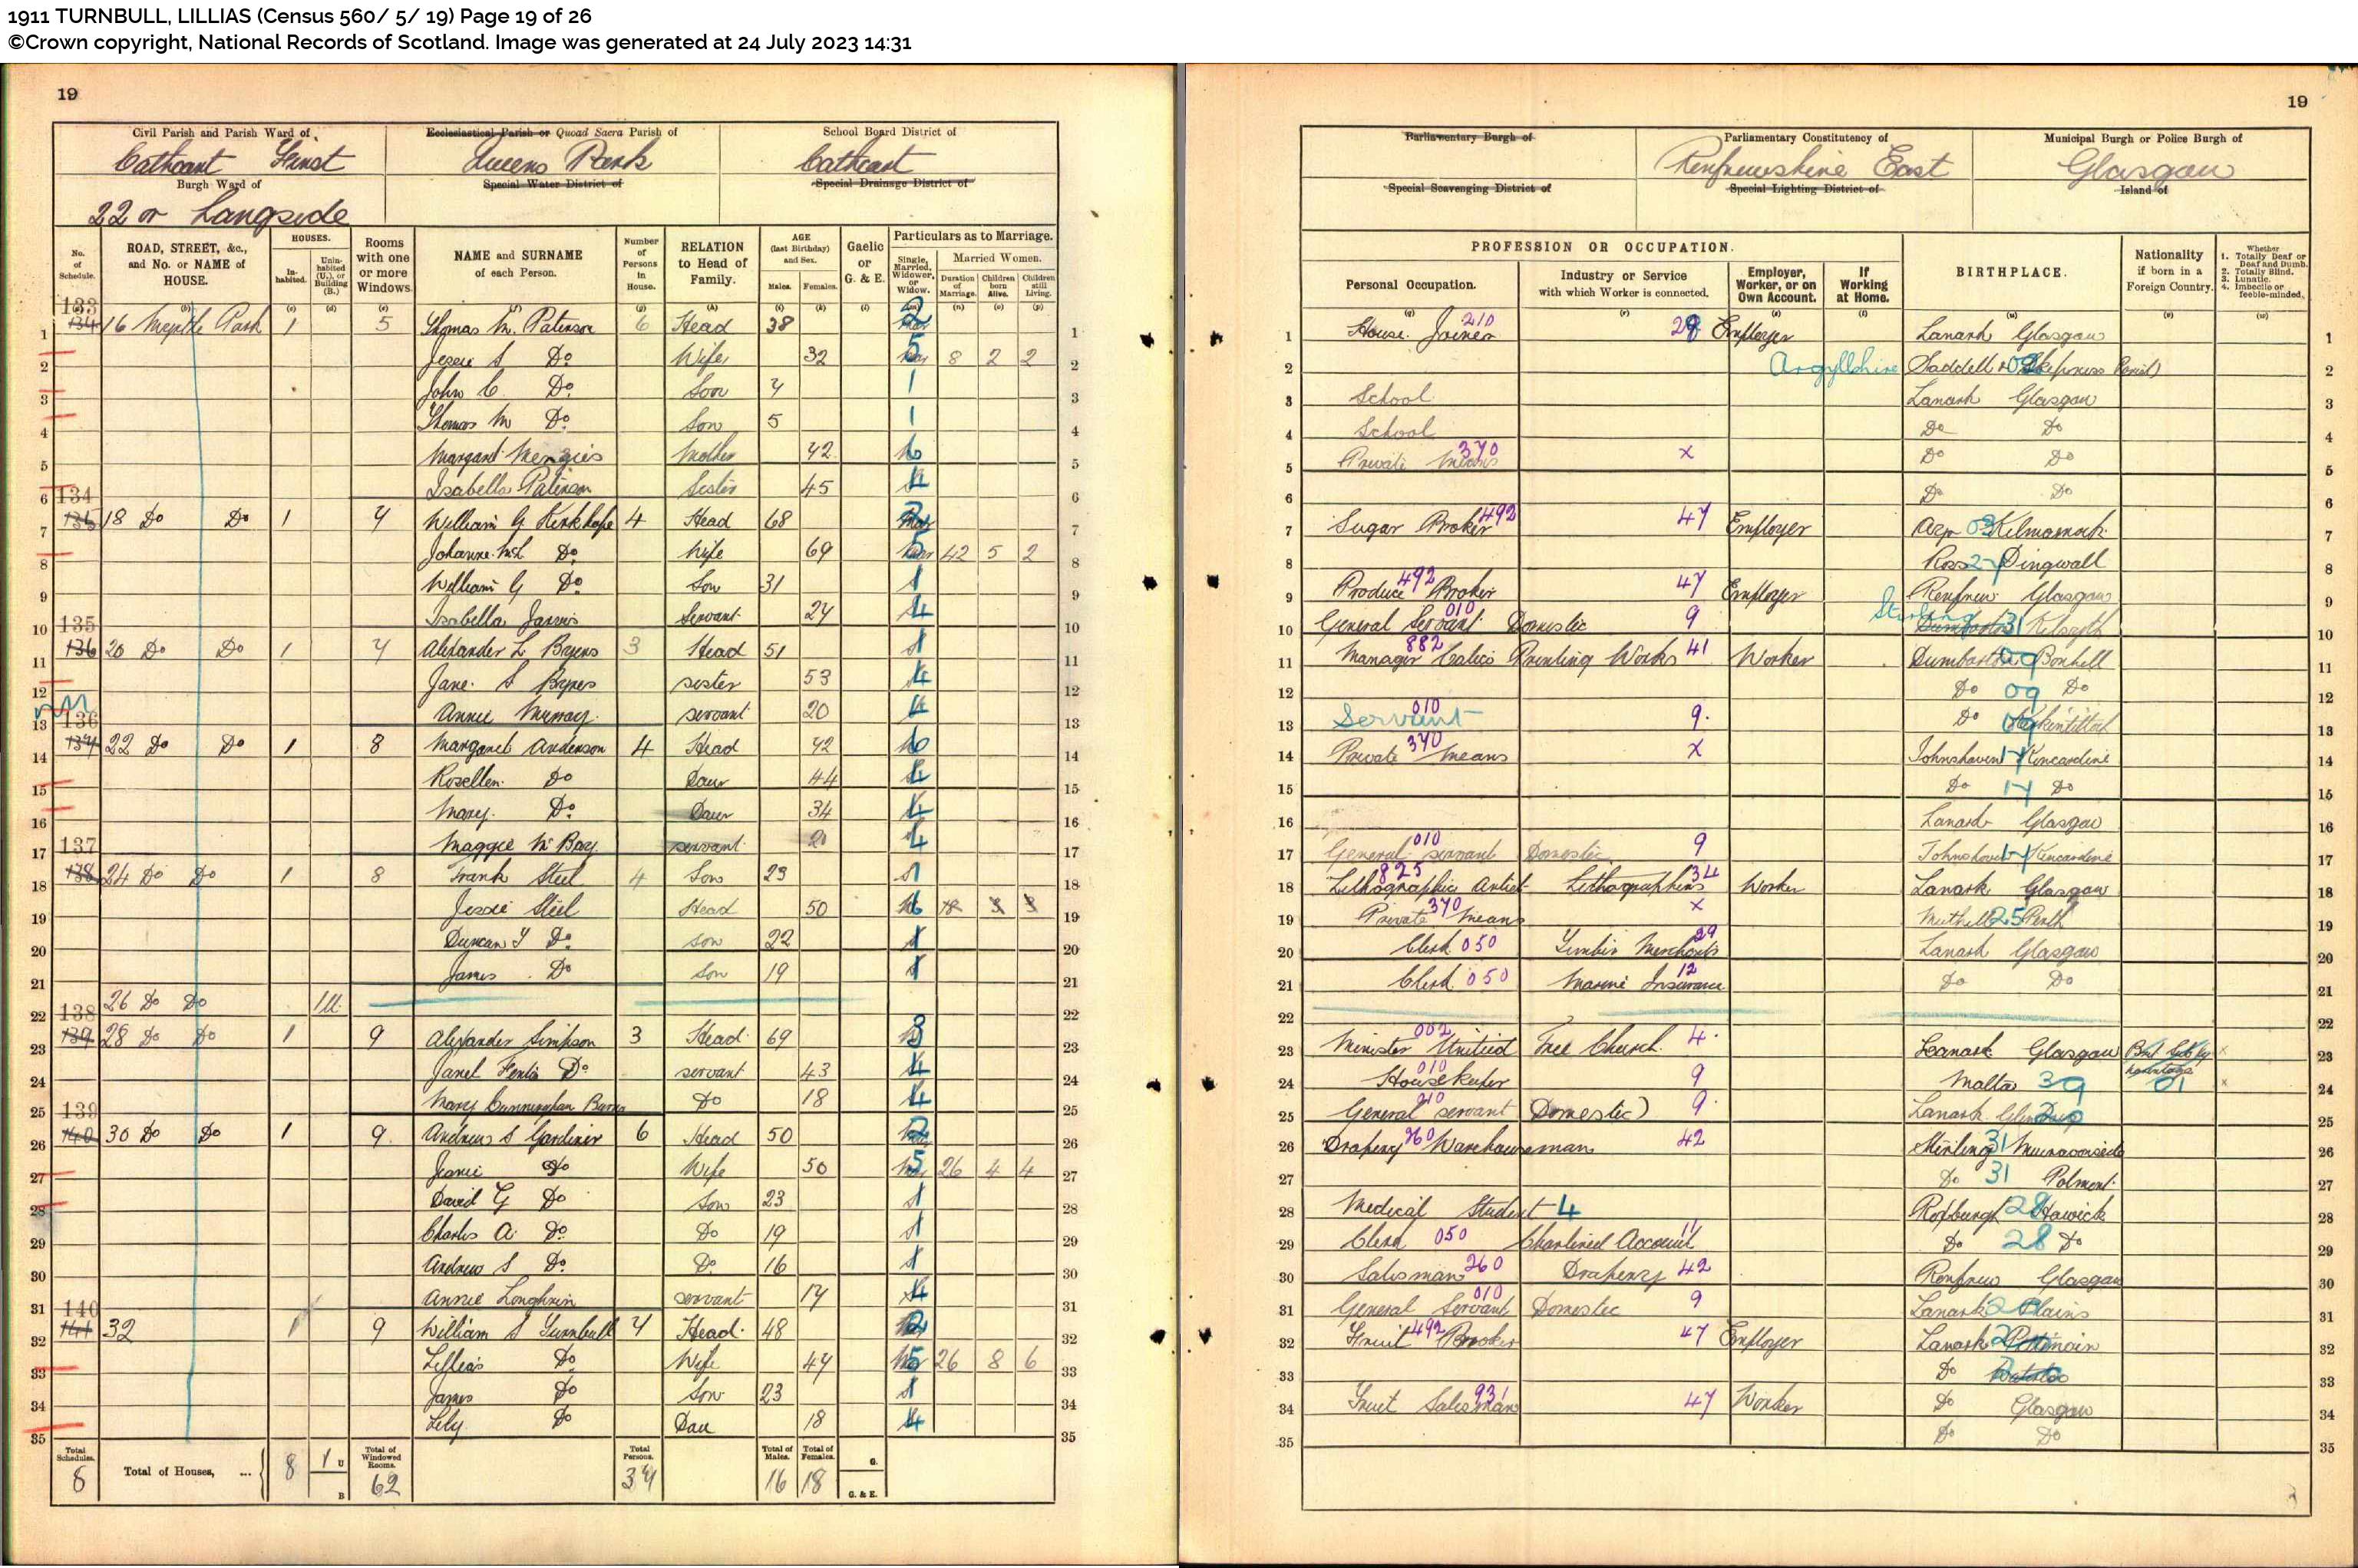 1911 TURNBULL, LILLIAS (Census 560/ 5/ 19) Page 19 of 26
©Crown copyright, National Records of Scotland. Image was generated at 24 July 2023 14:31
19
Civil Parish and Parish Ward of
Ecclesiastical Parish or Quoad Sacra Parish of
School Board District of
Cathcart First
Queens Park
Cathcart
Burgh Ward of
Special Water District of
Special Drainage District of
22 or Langside
No. of Schedule.
ROAD, STREET, &c., and No. or NAME of HOUSE.
HOUSES.
Inhabited.
Uninhabited (U.), or Building (B.)
Rooms with one or more Windows
NAME and SURNAME of each Person.
Number of Persons in House.
RELATION to Head of Family.
AGE (last Birthday) and Sex.
Males.
Females.
Gaelic or G. & E.
Particulars as to Marriage.
Single, Married, Widower, or Widow.
Married Women.
Duration of Marriage.
Children born Alive.
Children still Living.
133 134 16 Myrtle Park 1 5 Thomas M. Paterson 6 Head 38 2 1
Jessie S Do Wife 32 5 8 2 2 2
John C Do Son 7 1 3
Thomas M Do Son 5 1 4
Margaret Menzies Mother 72 6 5
Isabella Paterson Sister 45 4 6
134 135 18 Do Do 1 7 William G Kirkhope 4 Head 68 2 7
Johanne McL Do Wife 69 5 42 5 2 8
William G Do Son 31 1 9
Isabella Servant 27 4 10
135 136 20 Do Do 1 7 Alexander L Bryens 3 Head 51 1 11
Jane S sister 53 4 12
Annie Murray servant 20 4 13
136 137 22 Do Do 1 8 Margaret Anderson 4 Head 72 6 14
Rosellen Do Daur 44 4 15
Mary Do Daur 34 4 16
Maggie McBay servant 20 4 17
137 138 24 Do Do 1 8 Frank Steel 4 Son 23 1 18
Jessie Steel Head 50 6 3 3 19
Duncan Y Do Son 22 1 20
James Do Son 19 1 21
26 Do Do 1U. 22
138 139 28 Do Do 1 9 Alexander Simpson 3 Head 69 3 23
Janet Do servant 43 4 24
Mary Cunningham Burns Do 18 4 25
139 140 30 Do Do 1 9 Andrew S Gardiner 6 Head 50 2 26
Jeanie Do Wife 50 5 26 4 4 27
David G Do Son 23 1 28
Charles A. Do Do 19 1 29
Andrew S Do Do 16 1 30
Annie Loughrin servant 17 4 31
140 141 32 1 9 William S Turnbull 7 Head 48 2 32
Lillias Do Wife 47 5 26 8 6 33
James Do Son 23 1 34
Lily Do Dau 18 4 35
Total Schedules. 8
Total of Houses, ... 8 1 U B
Total of Windowed Rooms. 62
Total Persons. 34
Total of Males. 16
Total of Females. 18
G.
G. & E.
19
Parliamentary Burgh of
Parliamentary Constitutency of
Municipal Burgh or Police Burgh of
Renfrewshire East
Glasgow
Special Scavenging District of
Special Lighting District of
Island of
PROFESSION OR OCCUPATION.
Personal Occupation.
Industry or Service with which Worker is connected.
Employer, Worker, or on Own Account.
If Working at Home.
BIRTHPLACE.
Nationality if born in a Foreign Country.
Whether 1. Totally Deaf or Deaf and Dumb. 2. Totally Blind. 3. Lunatic. 4. Imbecile or feeble-minded.
1 House Joiner 210 28 Employer Lanark Glasgow 1
2 Argyllshire Saddell & Skipness Parish) 2
3 School Lanark Glasgow 3
4 School Do Do 4
5 Private Means 370 x Do Do 5
6 Do Do 6
7 Sugar Broker 492 47 Employer Ayr 03 Kilmarnock 7
8 Ross 27 Dingwall 8
9 Produce Broker 492 47 Employer Renfrew Glasgow 9
10 General Servant 010 Domestic 9 Stirling Dumbarton 31 Kilsyth 10
11 Manager Calico Printing Works 882 41 Worker Dumbarton 09 Bonhill 11
12 Do 09 Do 12
13 Servant 010 9. Do 09 Kirkintilloch 13
14 Private Means 370 x Johnshaven 17 Kincardine 14
15 Do 17 Do 15
16 Lanark Glasgow 16
17 General servant 010 Domestic 9 Johnshaven 17 Kincardine 17
18 Lithographic Artist 825 Lithographers 34 Worker Lanark Glasgow 18
19 Private Means 370 x Muthill 25 Perth 19
20 Clerk 050 Timber Merchants 29 Lanark Glasgow 20
21 Clerk 050 Marine Insurance 12 Do Do 21
22 22
23 Minister United Free Church 002 4 Lanark Glasgow 23
24 Housekeeper 010 9 Malta 39 01 24
25 General servant 010 (Domestic) 9 Lanark 20 25
26 Drapery Warehouseman 960 42 Stirling 31 Muiravonside 26
27 Do 31 Polmont 27
28 Medical Student 4 Roxburgh 28 Hawick 28
29 Clerk 050 Chartered Account 11 Do 28 Do 29
30 Salesman 260 Drapery 42 Renfrew Glasgow 30
31 General Servant 010 Domestic 9 Lanark 20 Plains 31
32 Fruit Broker 492 47 Employer Lanark 20 Pettinain 32
33 Do 33
34 Fruit Salesman 931 47 Worker Do Glasgow 34
35 Do Do 35